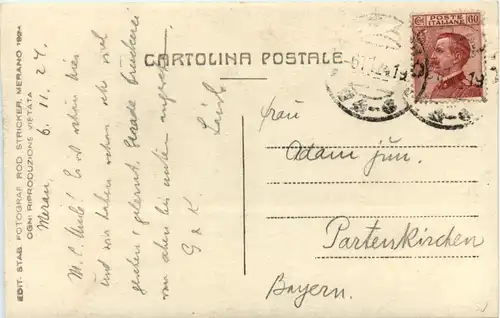 EDIT. STAB. FOTOGRAF. ROD. STRICKER, MERANO 1924
OGNI RIPRODUZIONE VIETATA
CARTOLINA POSTALE
POSTE ITALIANE 60
Meran, 6. 11. 24.
M. C. ! Es ist schön hier
und wir haben schon sehr viel
gesehen & gelernt. Gerade
von oben bis unten
G & K.
Frau
Adam jun.
Partenkirchen
Bayern.